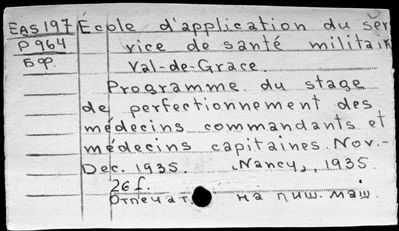 EAS 197 École d'application du ser
P 964 vice de santé militair
Бф. Val-de-Grace.
Programme du stage
de perfectionnement des
médecins commandants et
médecins capitaines. Nov.-
Dec. 1935. Nancy, 1935.
26 f.
Отпечат. на пиш. маш.